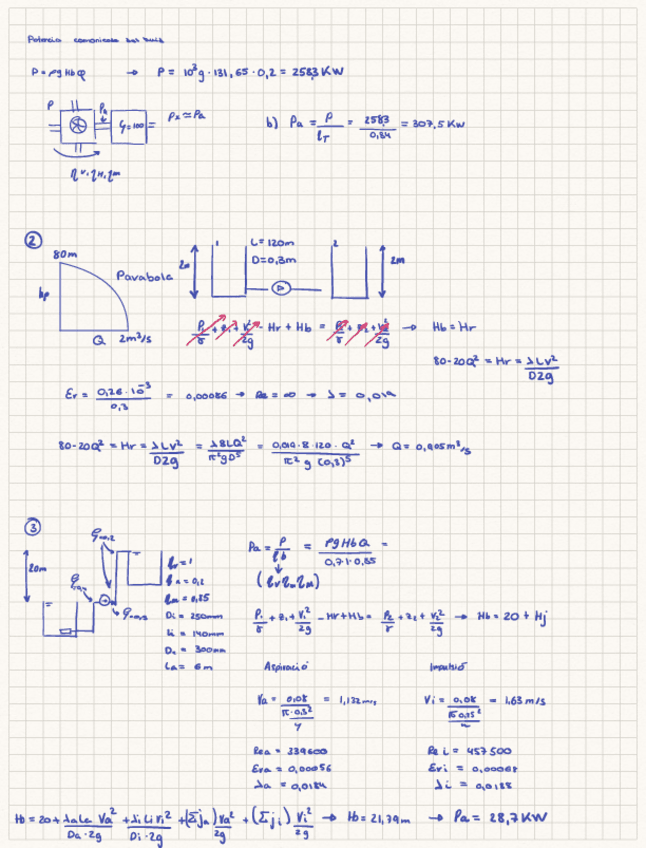 Potencia comunicada
P = ρgHbQ → P = 10³g · 131,65 · 0,2 = 258,3 KW
P Pa ρ=100 P₂ ≃ Pa
ηv · ηH · ηm
b) Pa = P/ηT = 258,3/0,84 = 307,5 Kw
②
80m
hp
Parabola
Q 2m³/s
1 L = 120m 2
2m D = 0,3m 2m
P₁/γ + z₁ + V₁²/2g - Hr + Hb = P₂/γ + z₂ + V₂²/2g → Hb = Hr
80-20Q² = Hr = λLv²/D2g
Er = 0,26 · 10⁻³/0,3 = 0,00086 → Re = ∞ → λ = 0,019
80-20Q² = Hr = λLv²/D2g = λ8LQ²/π²gD⁵ = 0,019 · 8 · 120 · Q²/π² g (0,3)⁵ → Q = 0,905m³/s
③
20m
ηv = 1
ηH = 0,2
ηm = 0,85
Di = 250mm
Li = 140mm
Da = 300mm
La = 6m
Pa = P/ηb = ρgHbQ/0,71·0,85 =
(ηvηHηm)
P₁/γ + z₁ + V₁²/2g - Hr + Hb = P₂/γ + z₂ + V₂²/2g → Hb = 20 + Hj
Aspiració Impulsió
Va = 0,08/(π·0,3²/4) = 1,132 m/s Vi = 0,08 = 1,63 m/s
Rea = 339600 Rei = 457500
Era = 0,00056 Eri = 0,00068
λa = 0,0184 λi = 0,0188
Hb = 20 + λaLa Va²/Da·2g + λi Li Vi²/Di·2g + (Σja) Va²/2g + (Σji) Vi²/2g → Hb = 21,79m → Pa = 28,7 KW